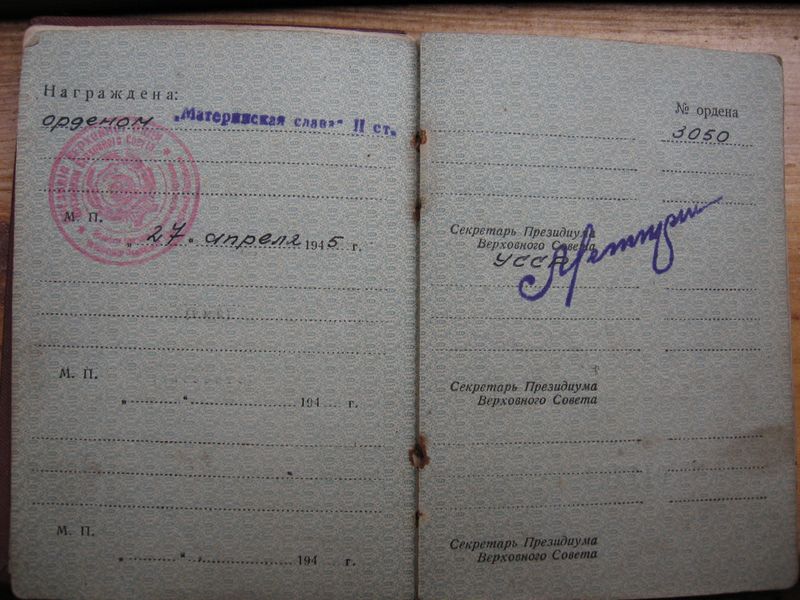 Награждена:
орденом „Материнская слава" II ст.
М. П.
„ 27 " апреля 1945 г.
М. П.
„ " 194 г.
М. П.
„ " 194 г.
№ ордена
3050
Секретарь Президиума
Верховного Совета
УССР
Секретарь Президиума
Верховного Совета
Секретарь Президиума
Верховного Совета